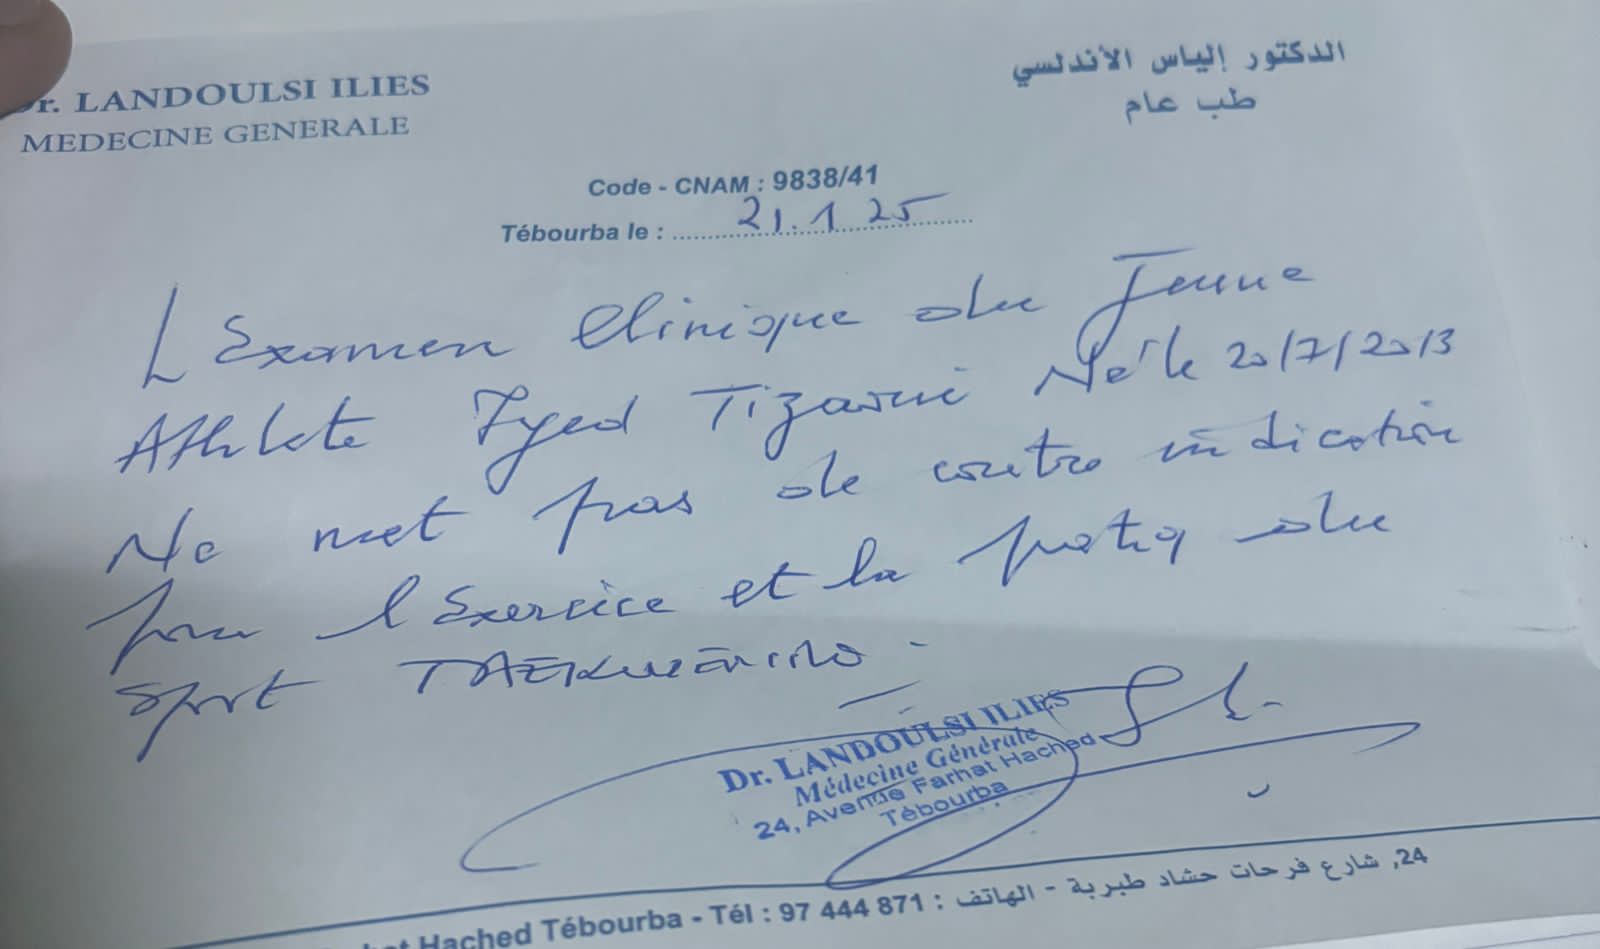 Dr. LANDOULSI ILIES
MEDECINE GENERALE
الدكتور إلياس الأندلسي
طب عام
Code - CNAM : 9838/41
Tébourba le : 21.1 25
L'Examen Clinique du Jeune
Athlete Zyed Tizaoui Né le 20/7/2013
Ne met pas de contre indication
pour l'Exercice et la pratiq du
Sport TAEKWENDO.
Dr. LANDOULSI ILIES
Médecine Générale
24, Avenue Farhat Hached
Tébourba
Hached Tébourba - Tél : 97 444 871 : 24, شارع فرحات حشاد طبربة - الهاتف